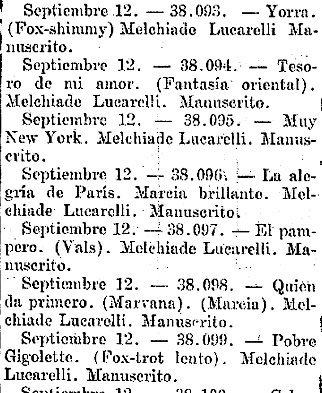 Septiembre 12. — 38.093. — Yorra.
(Fox-shimmy) Melchiade Lucarelli Ma-
nuscrito.
Septiembre 12. — 38.094. — Teso-
ro de mi amor. (Fantasía oriental).
Melchiade Lucarelli. Manuscrito.
Septiembre 12. — 38.095. — Muy
New York. Melchiade Lucarelli. Manus-
crito.
Septiembre 12. — 38.096. — La ale-
gría de París. Marcia brillante. Mel-
chiade Lucarelli. Manuscrito.
Septiembre 12. — 38.097. — El pam-
pero. (Vals). Melchiade Lucarelli. Ma-
nuscrito.
Septiembre 12. — 38.098. — Quién
da primero. (Marvana). (Marcia). Mel-
chiade Lucarelli. Manuscrito.
Septiembre 12. — 38.099. — Pobre
Gigolette. (Fox-trot lento). Melchiade
Lucarelli. Manuscrito.